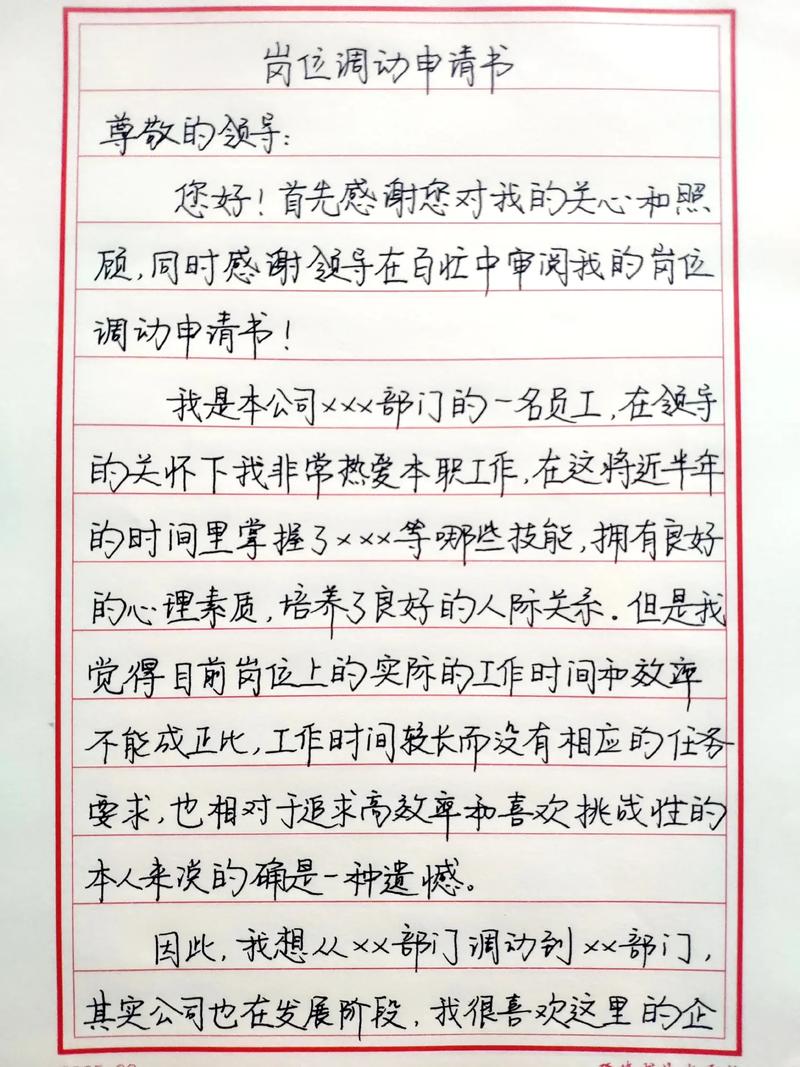 岗位调动申请书
尊敬的领导：
您好！首先感谢您对我的关心和照
顾，同时感谢领导在百忙中审阅我的岗位
调动申请书！
我是本公司×××部门的一名员工，在领导
的关怀下我非常热爱本职工作，在这将近半年
的时间里掌握了×××等哪些技能，拥有良好
的心理素质，培养了良好的人际关系．但是我
觉得目前岗位上的实际的工作时间和效率
不能成正比，工作时间较长而没有相应的任务
要求，也相对于追求高效率和喜欢挑战性的
本人来说的确是一种遗憾。
因此，我想从××部门调动到××部门，
其实公司也在发展阶段，我很喜欢这里的企